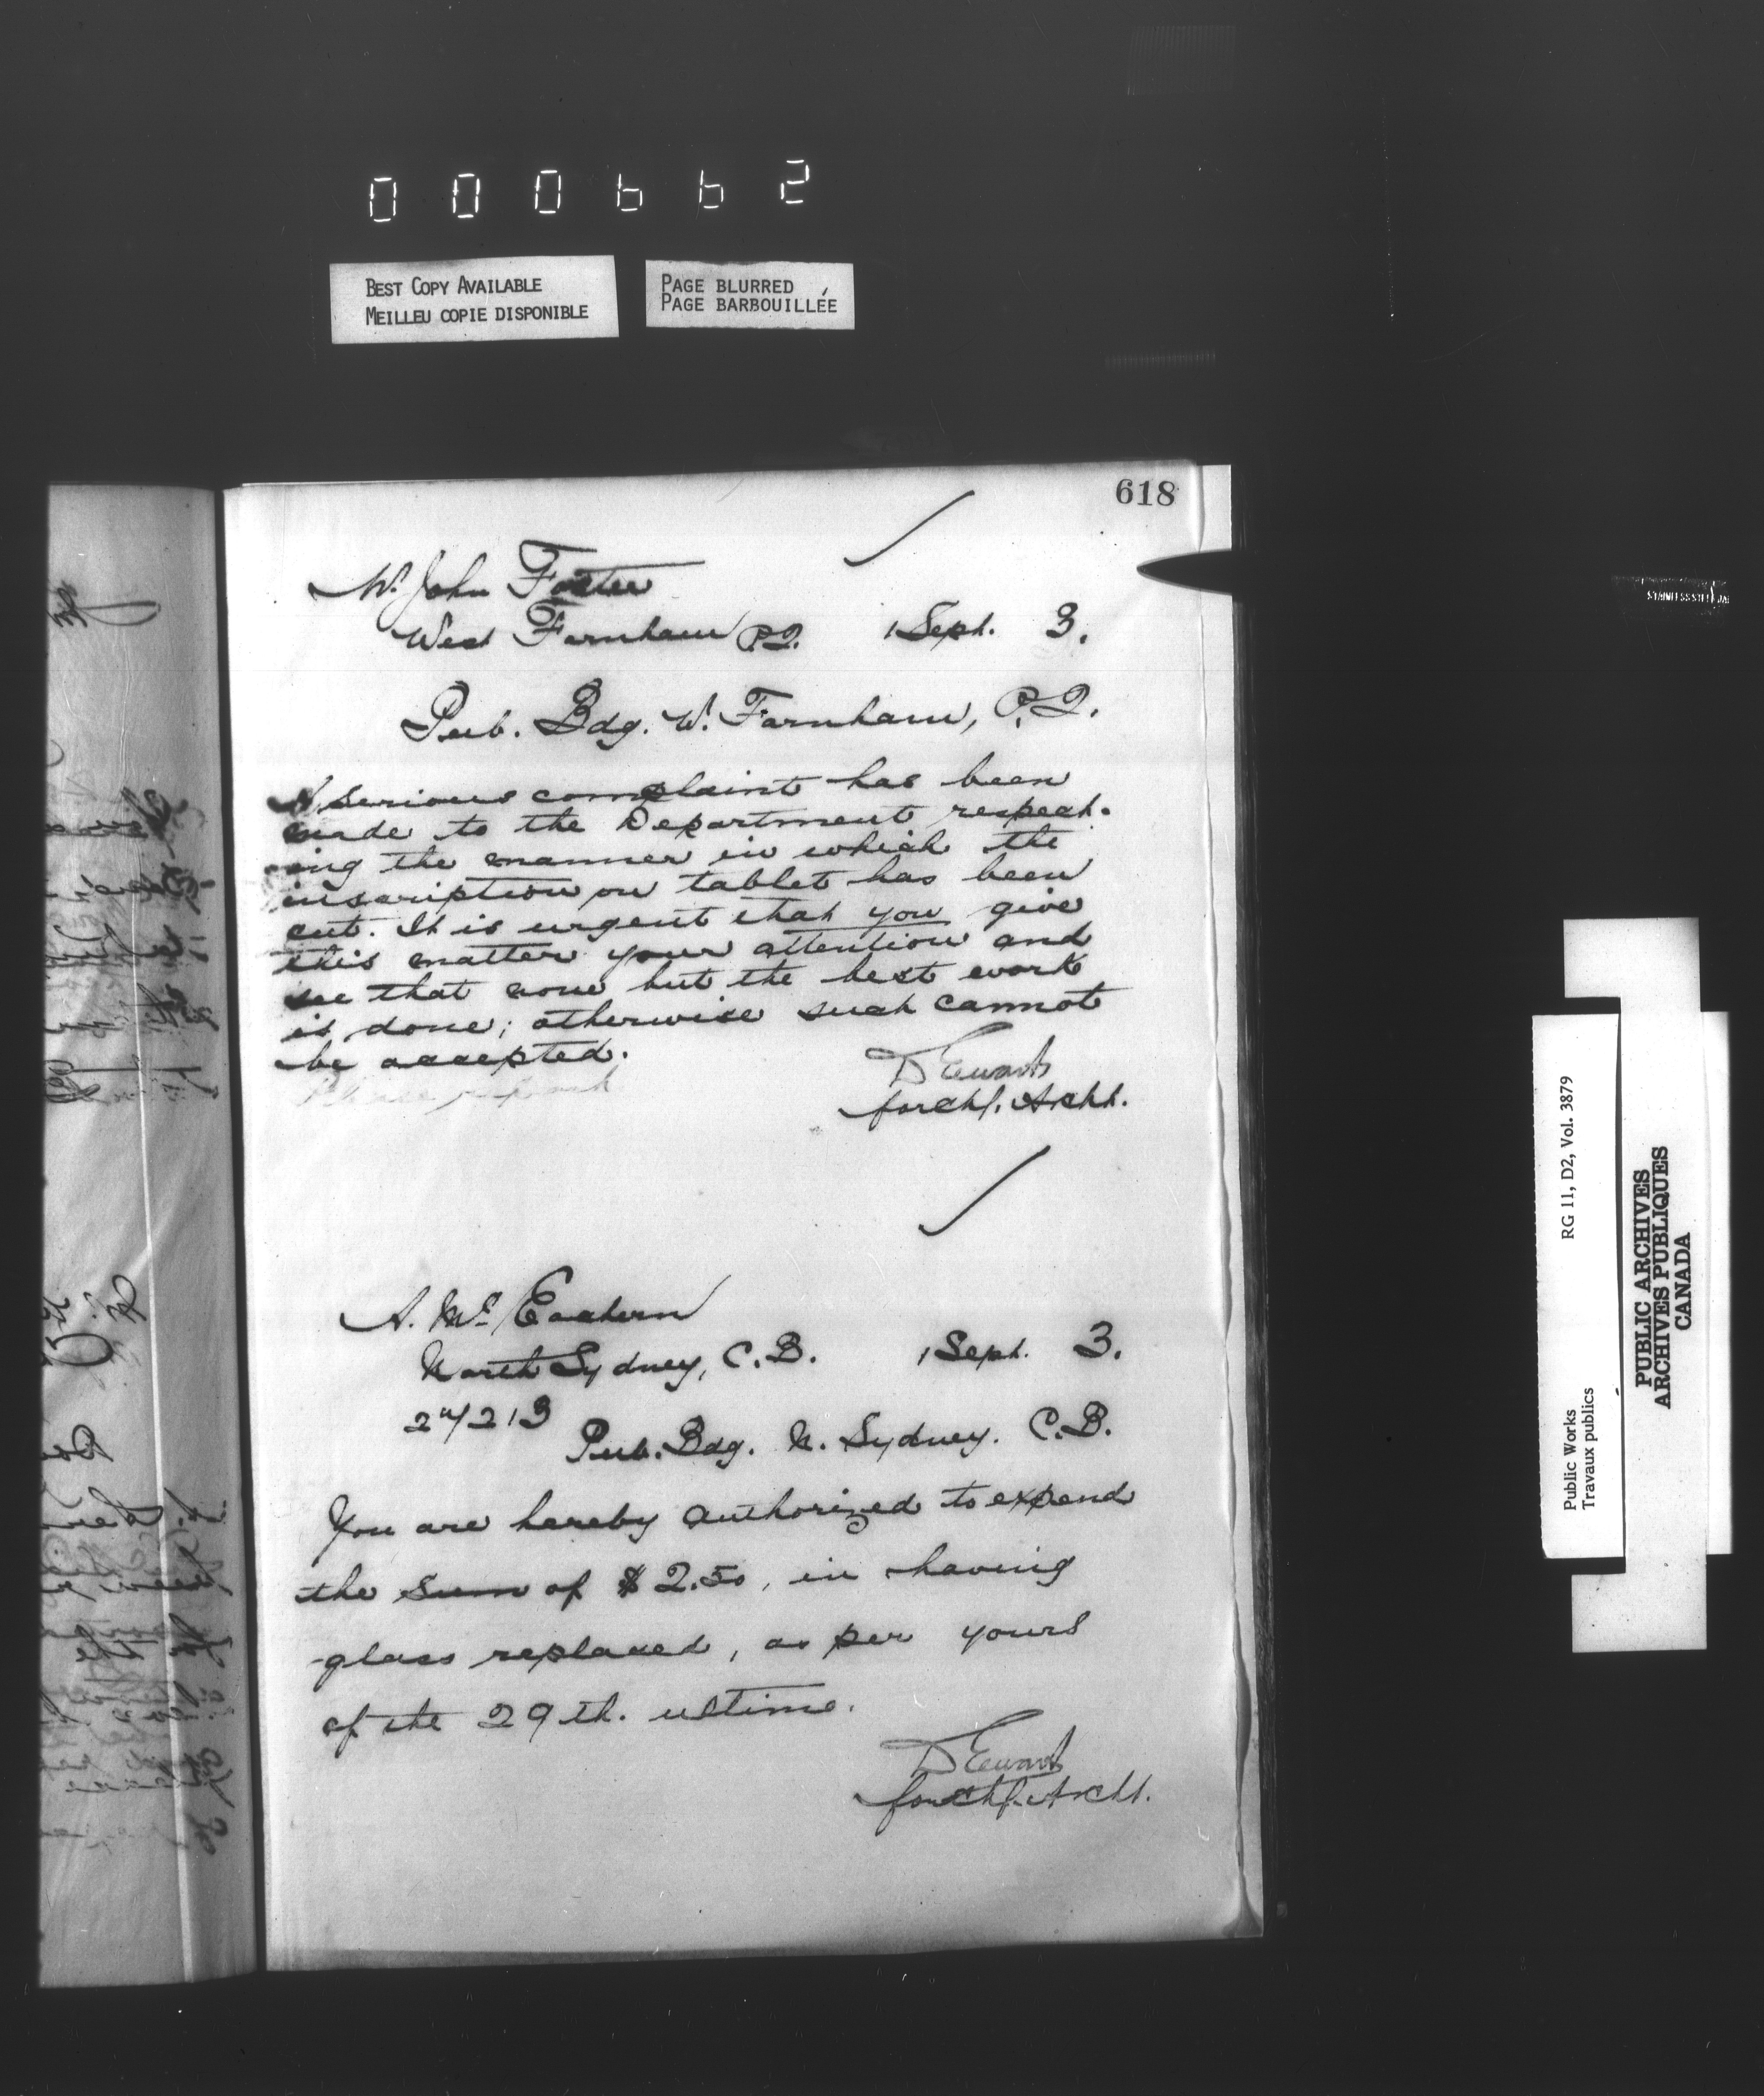 000662
BEST COPY AVAILABLE
MEILLEU COPIE DISPONIBLE
PAGE BLURRED
PAGE BARBOUILLÉE
618
W. John Foster
West Farnham P.Q. 1 Sept. 3.
Pub. Bdg. W. Farnham, P.Q.
A serious complaint has been
made to the Department respect-
ing the manner in which the
inscription on tablet has been
cut. It is urgent that you give
this matter your attention and
see that none but the best work
is done; otherwise such cannot
be accepted.
Please
D Ewart
for Chf. Archt.
A. McEachern
North Sydney, C.B. 1 Sept. 3.
213
Pub. Bdg. N. Sydney. C.B.
You are hereby authorized to expend
the sum of $2.50, in having
glass replaced, as per yours
of the 29th. ultimo.
D Ewart
for Chf. Archt.
Public Works
Travaux publics
RG 11, D2, Vol. 3879
PUBLIC ARCHIVES
ARCHIVES PUBLIQUES
CANADA